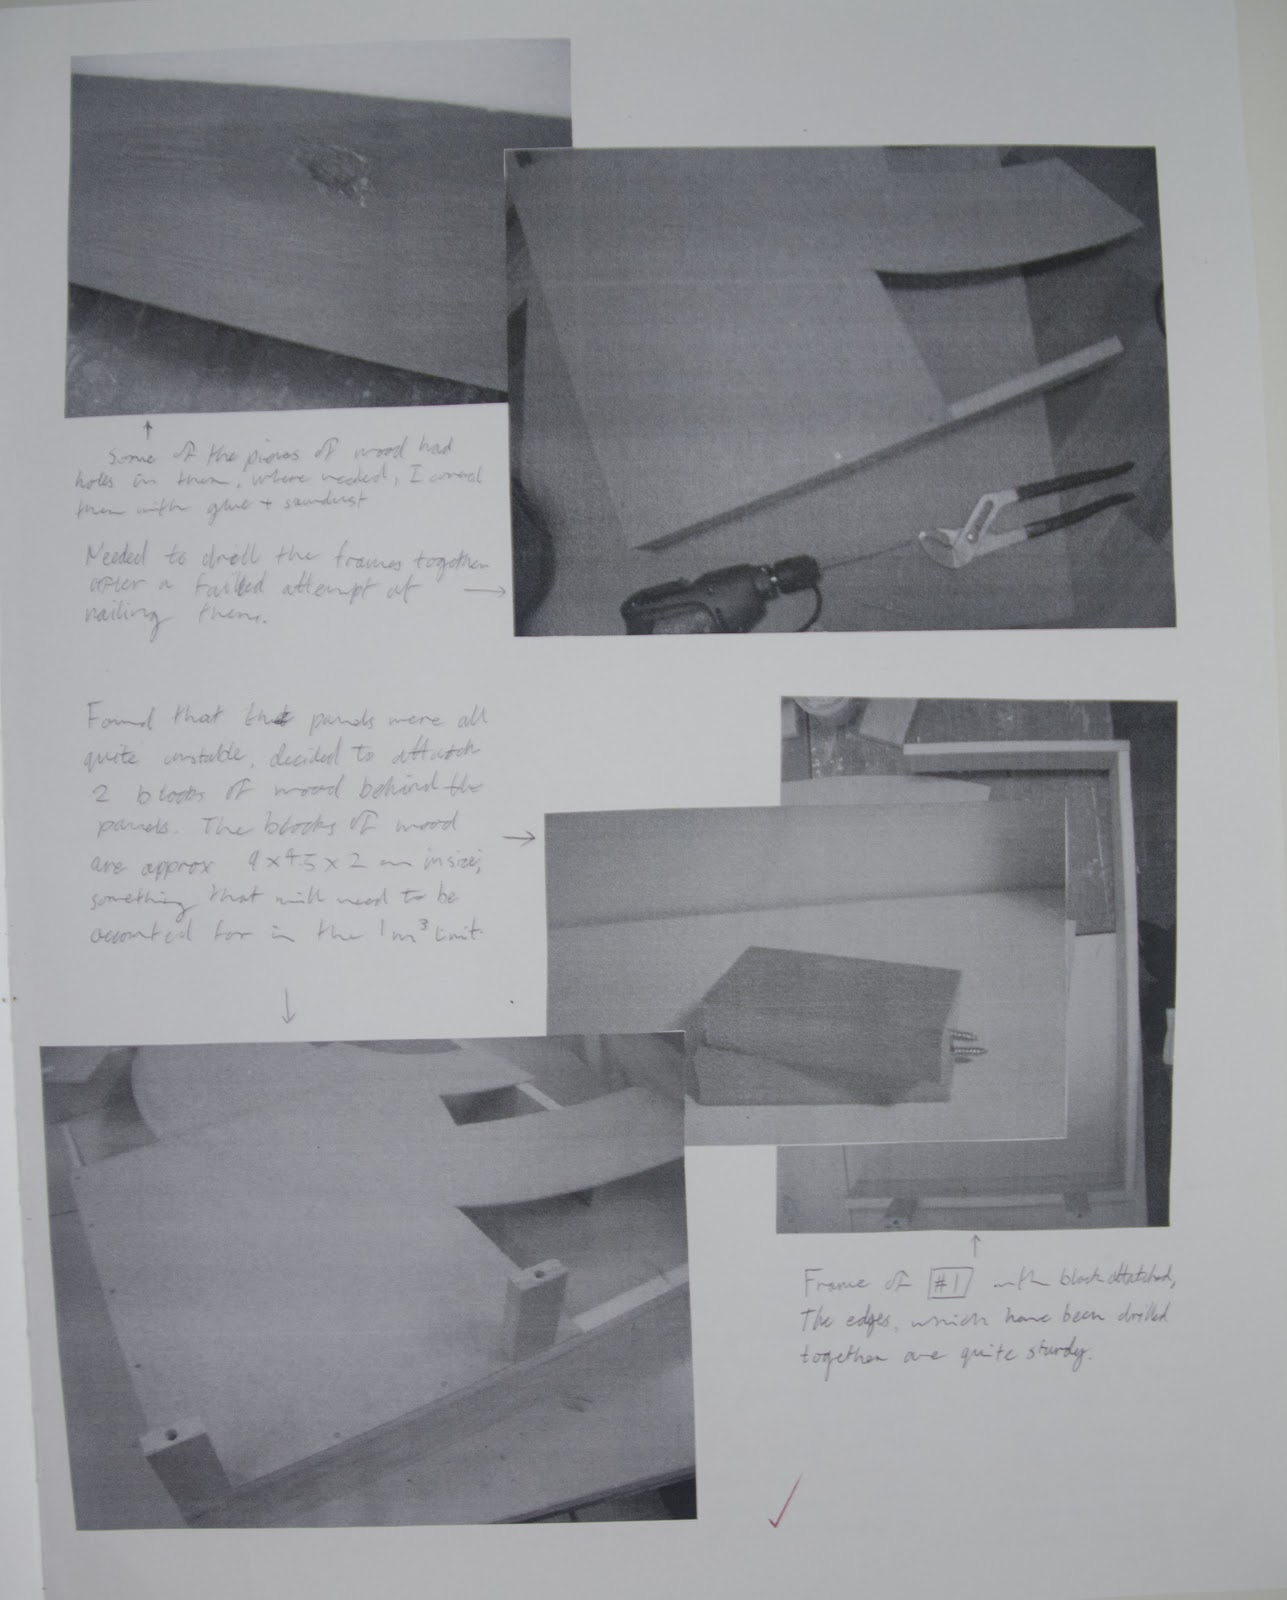 Some of the pieces of wood had
holes in them, where needed, I covered
them with glue + sawdust
Needed to drill the frames together
after a failed attempt at
nailing them.
Found that the panels were all
quite unstable, decided to attach
2 blocks of wood behind the
panels. The blocks of wood
are approx 9 x 4.5 x 2 cm in size,
something that will need to be
accounted for in the 1m³ limit.
Frame of #1 with block attatched,
The edges, which have been drilled
together are quite sturdy.